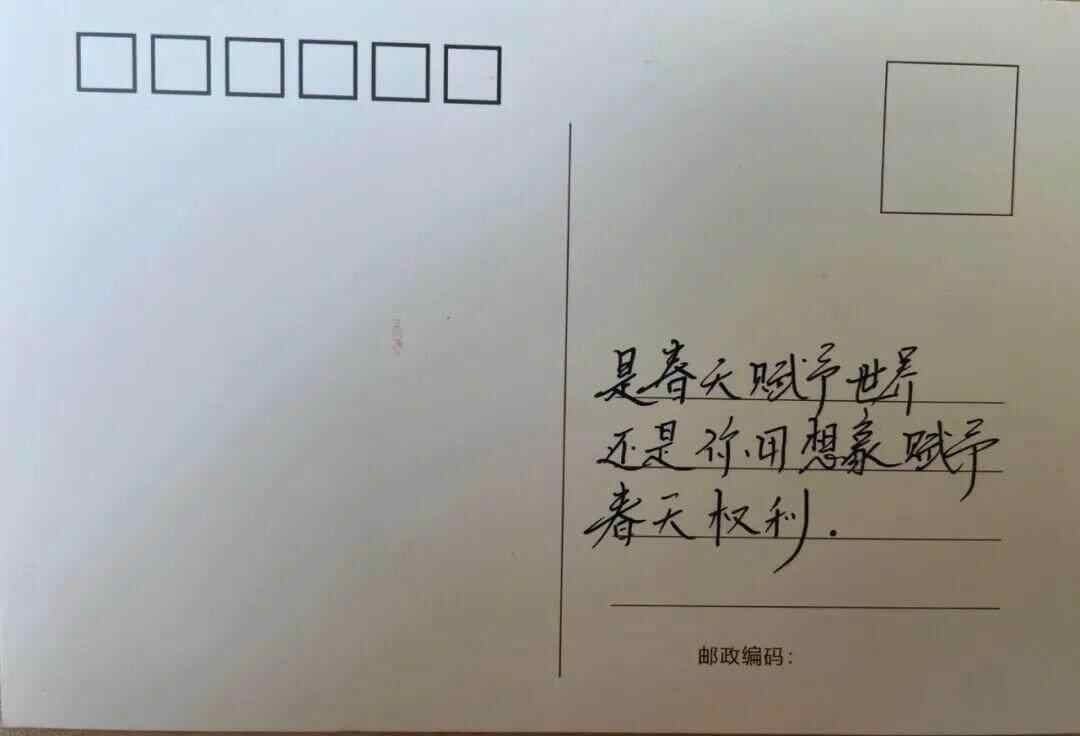 是春天赋予世界
还是你用想象赋予
春天权利.
邮政编码: